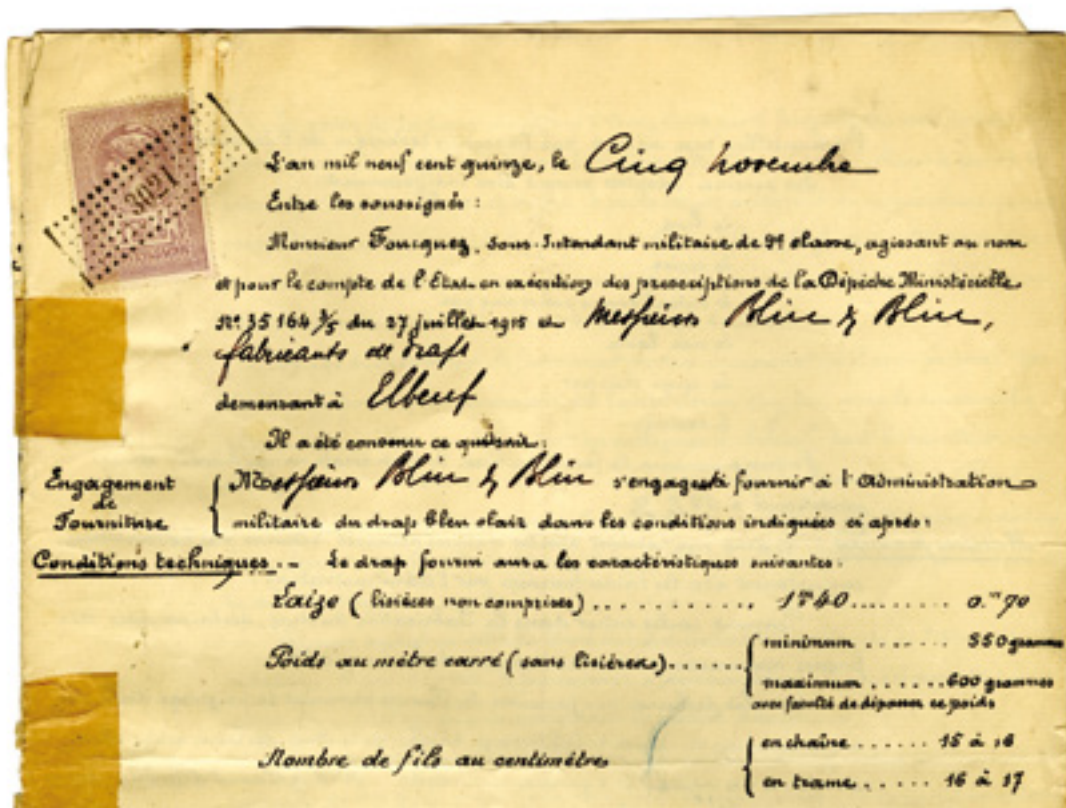 3021
L'an mil neuf cent quinze, le Cinq novembre
Entre les soussignés :
Monsieur Foucquez, Sous-Intendant militaire de classe, agissant au nom
et pour le compte de l'Etat en exécution des prescriptions de la Dépêche Ministérielle
No 35 164 3/5 du 27 juillet 1915 et Messieurs Blin & Blin,
fabricants de draps
demeurant à Elbeuf
Il a été convenu ce qui suit :
Engagement de Fourniture
Messieurs Blin & Blin s'engagent à fournir à l'Administration
militaire du drap bleu clair dans les conditions indiquées ci après :
Conditions techniques .- Le drap fourni aura les caractéristiques suivantes :
Laize (lisières non comprises) .......... 1m40 ........ 0.m70
Poids au mètre carré (sans lisières) ......
minimum ....... 550 grammes
maximum ...... 600 grammes
avec faculté de dépasser ce poids
Nombre de fils au centimètre
en chaîne ...... 15 à 16
en trame ...... 16 à 17